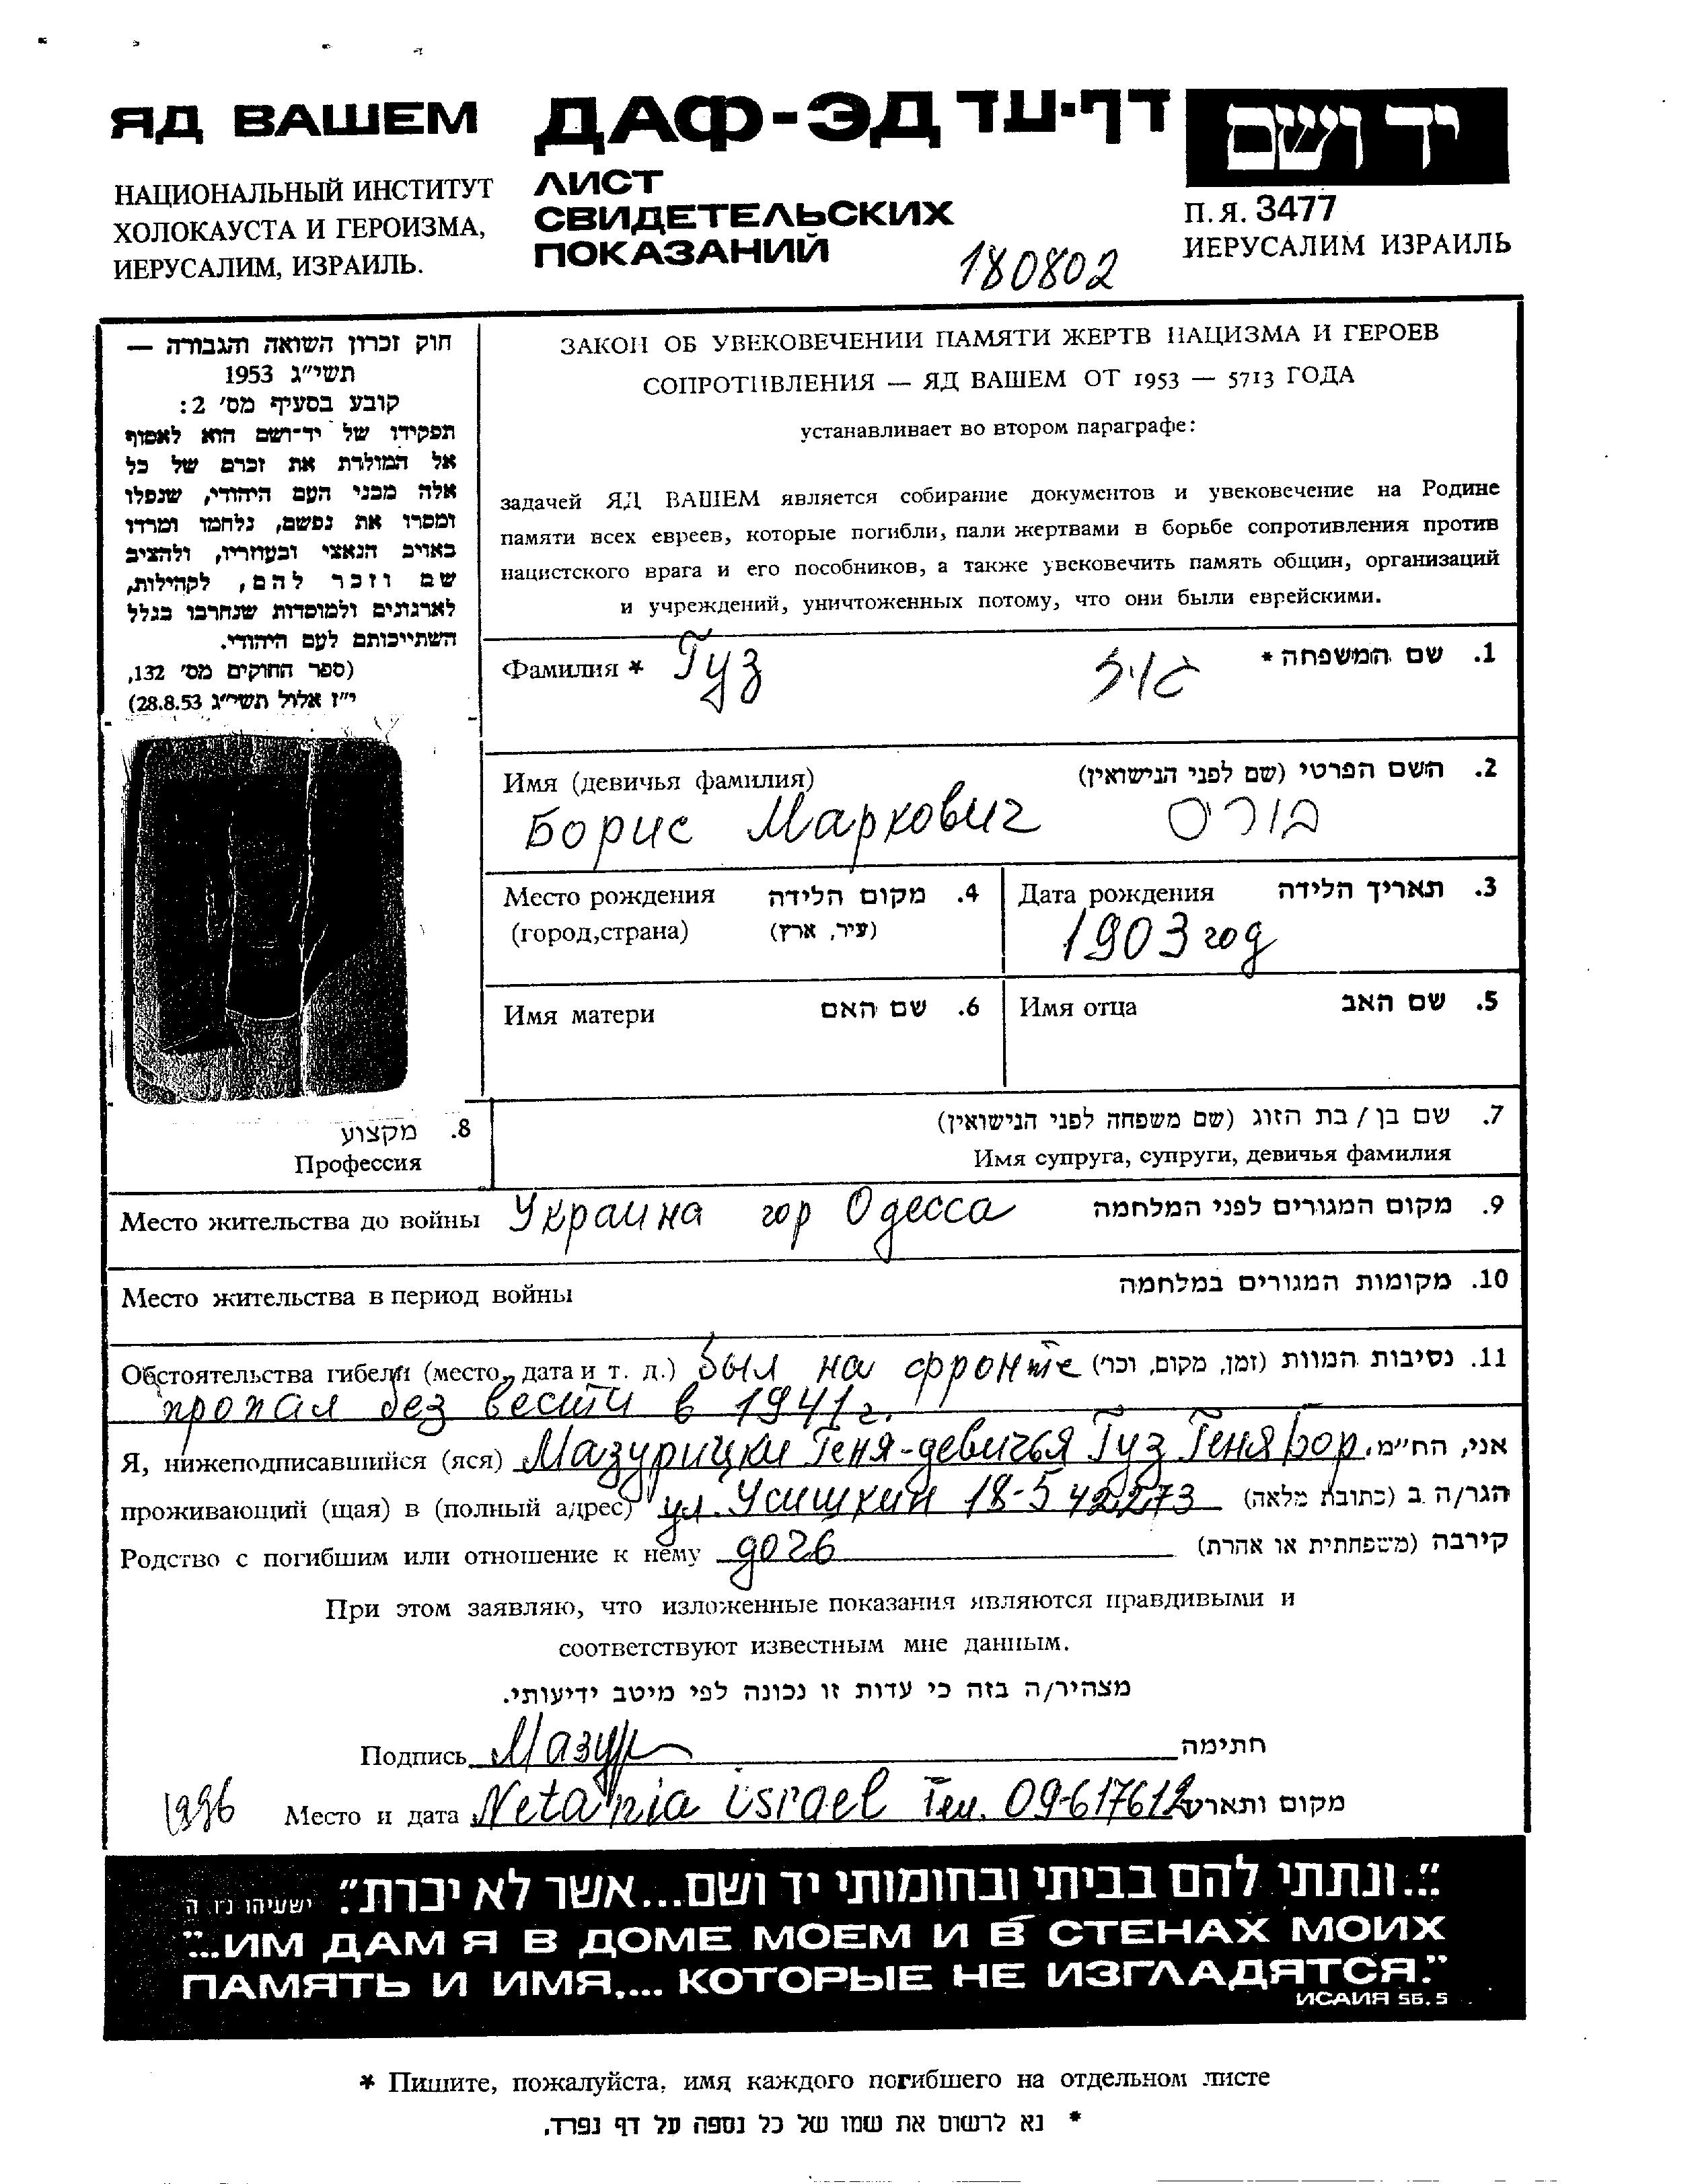 ЯД ВАШЕМ
НАЦИОНАЛЬНЫЙ ИНСТИТУТ
ХОЛОКАУСТА И ГЕРОИЗМА,
ИЕРУСАЛИМ, ИЗРАИЛЬ.
ДАФ-ЭД דף-עד
ЛИСТ
СВИДЕТЕЛЬСКИХ
ПОКАЗАНИЙ
180802
יד ושם
П.Я. 3477
ИЕРУСАЛИМ ИЗРАИЛЬ
חוק זכרון השואה והגבורה —
תשי"ג 1953
קובע בסעיף מס' 2:
תפקידו של יד-ושם הוא לאסוף
אל המולדת את זכרם של כל
אלה מבני העם היהודי, שנפלו
ומסרו את נפשם, נלחמו ומרדו
באויב הנאצי ובעוזריו, ולהציב
שם וזכר להם, לקהילות,
לארגונים ולמוסדות שנחרבו בגלל
השתייכותם לעם היהודי.
(ספר החוקים מס' 132,
י"ז אלול תשי"ג 28.8.53)
ЗАКОН ОБ УВЕКОВЕЧЕНИИ ПАМЯТИ ЖЕРТВ НАЦИЗМА И ГЕРОЕВ
СОПРОТИВЛЕНИЯ — ЯД ВАШЕМ ОТ 1953 — 5713 ГОДА
устанавливает во втором параграфе:
задачей ЯД ВАШЕМ является собирание документов и увековечение на Родине
памяти всех евреев, которые погибли, пали жертвами в борьбе сопротивления против
нацистского врага и его пособников, а также увековечить память общин, организаций
и учреждений, уничтоженных потому, что они были еврейскими.
Фамилия * Гуз גוז 1. שם המשפחה *
Имя (девичья фамилия) 2. השם הפרטי (שם לפני הנישואין)
Борис Маркович בוריס
Место рождения 4. מקום הלידה
(город,страна) (עיר, ארץ)
Дата рождения 3. תאריך הלידה
1903 год
Имя матери 6. שם האם
Имя отца 5. שם האב
8. מקצוע
Профессия
7. שם בן / בת הזוג (שם משפחה לפני הנישואין)
Имя супруга, супруги, девичья фамилия
Место жительства до войны Украина гор Одесса 9. מקום המגורים לפני המלחמה
Место жительства в период войны 10. מקומות המגורים במלחמה
Обстоятельства гибели (место, дата и т. д.) был на фронте 11. נסיבות המוות (זמן, מקום, וכר')
пропал без вести в 1941 г.
Я, нижеподписавшийся (яся) Мазурицки Геня-девичья Гуз Геня Бор. אני, הח"מ
проживающий (щая) в (полный адрес) ул. Усишкин 18-5 42273 הגר/ה ב (כתובת מלאה)
Родство с погибшим или отношение к нему дочь קירבה (משפחתית או אחרת)
При этом заявляю, что изложенные показания являются правдивыми и
соответствуют известным мне данным.
מצהיר/ה בזה כי עדות זו נכונה לפי מיטב ידיעותי.
Подпись Мазур חתימה
1996 Место и дата Netania israel Тел. 09-617612 מקום ותאריך
"...ונתתי להם בביתי ובחומותי יד ושם...אשר לא יכרת". ישעיהו נ"ו ה
"...ИМ ДАМ Я В ДОМЕ МОЕМ И В СТЕНАХ МОИХ
ПАМЯТЬ И ИМЯ,... КОТОРЫЕ НЕ ИЗГЛАДЯТСЯ."
ИСАИЯ 56.5
* Пишите, пожалуйста, имя каждого погибшего на отдельном листе
* נא לרשום את שמו של כל נספה על דף נפרד.